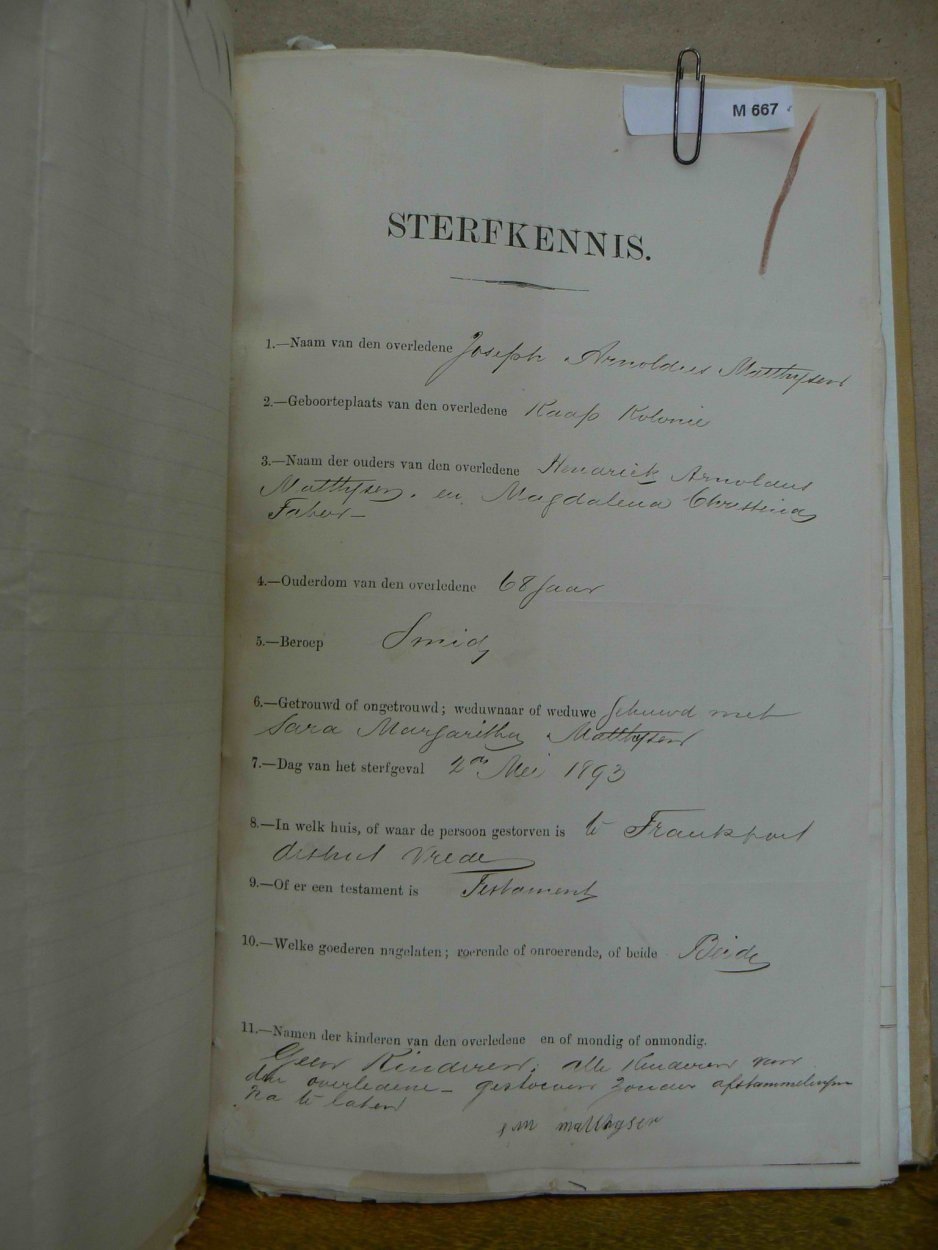 M 667
STERFKENNIS.
1.—Naam van den overledene Joseph Arnoldus Matthysen
2.—Geboorteplaats van den overledene Kaap Kolonie
3.—Naam der ouders van den overledene Hendrick Arnoldus
Matthysen. en Magdalena Christina
Faber—
4.—Ouderdom van den overledene 68 Jaar
5.—Beroep Smid
6.—Getrouwd of ongetrouwd; weduwnaar of weduwe Gehuwd met
Sara Margaritha Matthysen
7.—Dag van het sterfgeval 2de Mei 1893
8.—In welk huis, of waar de persoon gestorven is te Frankfort
district Vrede
9.—Of er een testament is Testament
10.—Welke goederen nagelaten; roerende of onroerende, of beide Beide
11.—Namen der kinderen van den overledene en of mondig of onmondig.
Geen Kinderen, alle Kinderen van
den overledene— gestorven zonder afstammelingen
na te laten
s m matthyser